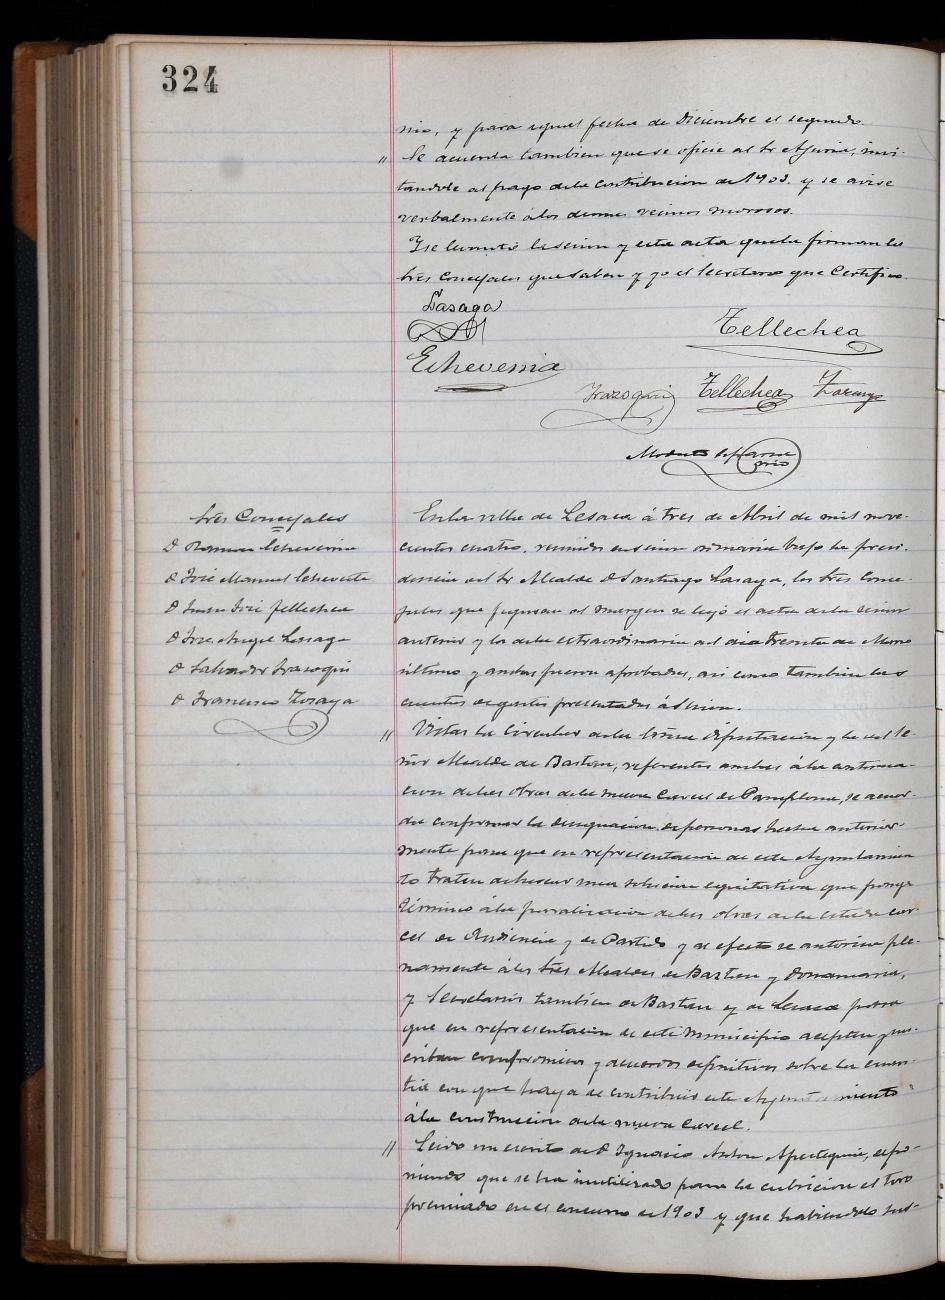 324
nio, y para igual fecha de Diciembre el segundo.
" Se acuerda tambien que se oficie al Sr Ajuria, invi-
tandole al pago dela contribucion de 1903. y se avise
verbalmente álos demas vecinos morosos.
Y se levantó la sesion y esta acta quela firman los
Sres Concejales que saben y yo el Secretario que Certifico.
Lasaga
Tellechea
Echeverria
Irazoqui Tellechea
Modesto
Sres Concejales
D Ramon Echeverria
D José Manuel Echeverte
D Juan José Tellechea
D José Angel Lasaga
D Salvador Irazoqui
D Francisco Zoraya
Enla villa de Lesaca á tres de Abril de mil nove-
cientos cuatro, reunidos en sesion ordinaria bajo la presi-
dencia del Sr Alcalde D Santiago Lasaga, los Sres Conce-
jales que figuran al margen se leyó el acta dela sesion
anterior y la dela extraordinaria del dia treinta de Marzo
último y ambas fueron aprobadas, asi como tambien las
cuentas de gastos presentadas á sesion.
" Vistas la Circular dela Excma Diputacion y la del Se-
ñor Alcalde de Bastan, referentes ambas ála continua-
cion delas obras dela nueva Carcel de Pamplona, se acuer-
da confirmar la designacion de personas hecha anterior-
mente para que en representacion de este Ayuntamien
to traten de buscar una solucion equitativa que ponga
término ála paralizacion delas obras dela citada car-
cel de Audiencia y de Partido y al efecto se autoriza ple-
namente álos Sres Alcaldes de Baztan y Donamaria,
y Secretarios tambien de Bastan y de Lesaca para
que en representacion de este Municipio acepten y sus-
criban compromisos y acuerdos definitivos sobre la cuan-
tia con que haya de contribuir este Ayuntamiento
ála construccion dela nueva Carcel.
" Leido un escrito de D Ignacio Anton Apestegui, espo-
niendo que se ha inutilizado para la cubricion el toro
premiado en el concurso de 1903 y que habiendolo sus-